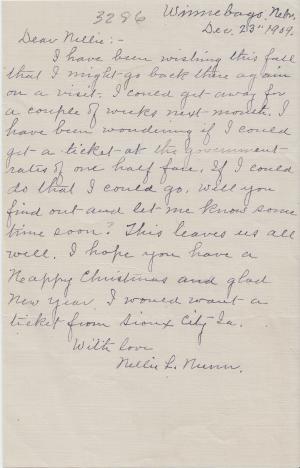 3286
Winnebago, Nebr.
Dec. 23rd 1909.
Dear Nellie:-
I have been wishing this fall
that I might go back there again
on a visit. I could get away for
a couple of weeks next month. I
have been wondering if I could
get a ticket at the government
rates of one half fare. If I could
do that I could go. Will you
find out and let me know some
time soon? This leaves us all
well. I hope you have a
Happy Christmas and glad
New Year. I would want a
ticket from Sioux City Ia.
With love
Nellie L. Nunn.